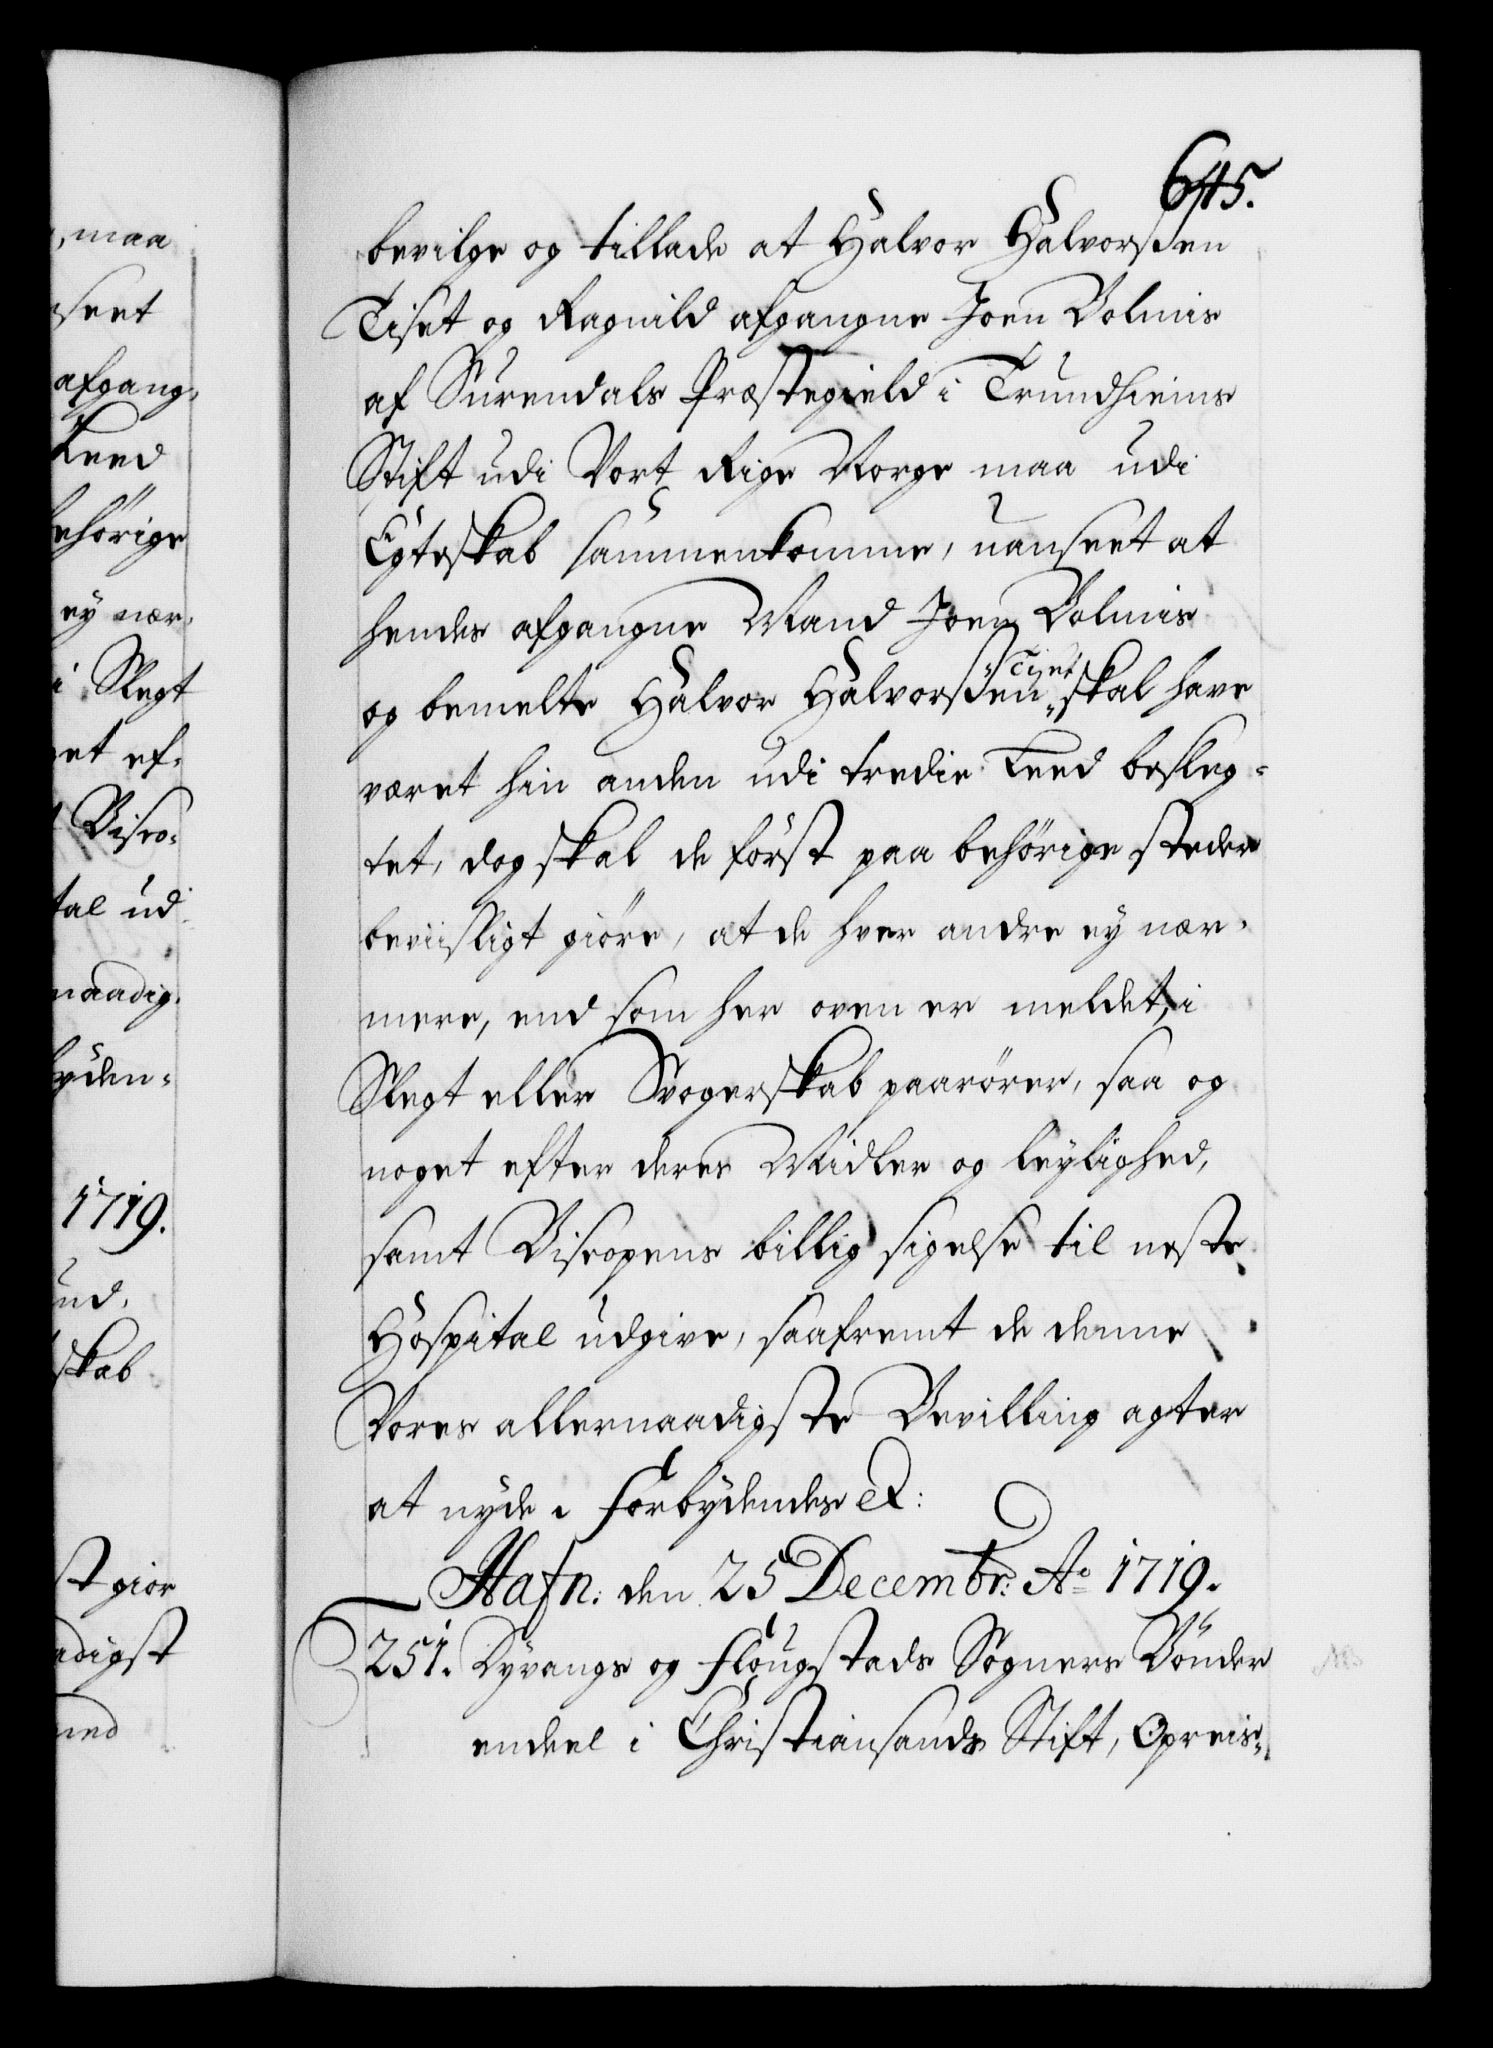 645.
bevilge og tillade at Halvor Halvorsßen
Tiset og Ragnild afgangne Joen Bolmis
af Surendals Præstegield i Trundhiems
Stift udi Vort Rige Norge maa udi
Egteskab sammenkomme, uanseet at
hendes afgangne Mand Joen Bolmis
og bemelte Halvor Halvorsßen "Tiset" skal have
været hin anden udi tredie Leed besleg-
tet, dog skal de först paa behörige steder
beviisligt giöre, at de hver andre ey nær-
mere, end som her oven er meldet, i
Slegt eller Svogerskab paarörer, saa og
noget efter deres Midler og leylighed,
samt Biscopens billig sigelse til neste
Hospital udgive, saafremt de denne
Vores allernaadigste Bevilling agter
at nyde. Forbydendes &:
Hafn: den 25 Decembr: Ao 1719.
251. Dyvangs og Flougstads Sogners Bönder
endeel i Christiansands Stift, Opreis-
, maa
seet
afgang,
Leed
ehörige
ey nær,
i Slegt
et ef-
Bisco-
tal ud
naadig-
yden-
1719.
und,
skab
st giör
adigst
med